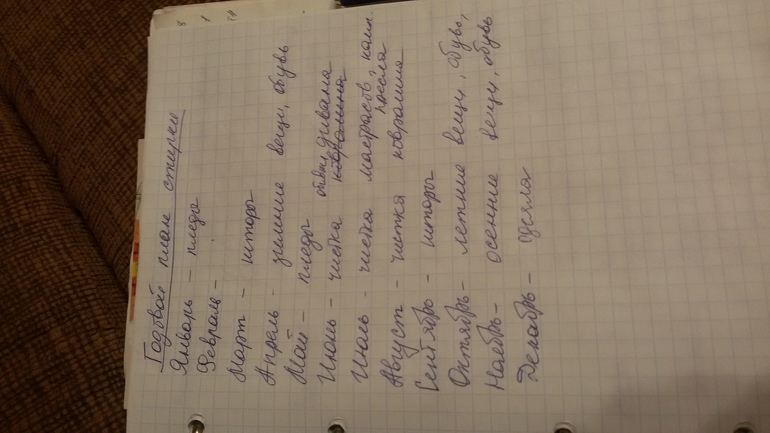 Годовой план стирки
Январь - пледы
Февраль -
Март - шторы
Апрель - зимние вещи, обувь
Май - пледы
Июнь - чистка обивки дивана
Июль - чистка мастрасов, комп. кресла
Август - чистка ковралина
Сентябрь - шторы
Октябрь - летние вещи, обувь,
Ноябрь - осенние вещи, обувь
Декабрь - одеяла